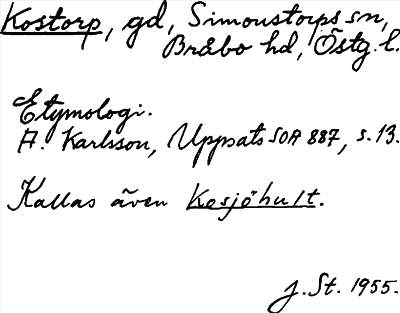 Kostorp, gd, Simonstorps sn,
Bråbo hd, Östg. l.
Etymologi.
A. Karlsson, Uppsats SOA 887, s. 13.
Kallas även Kosjöhult.
J. St. 1955.